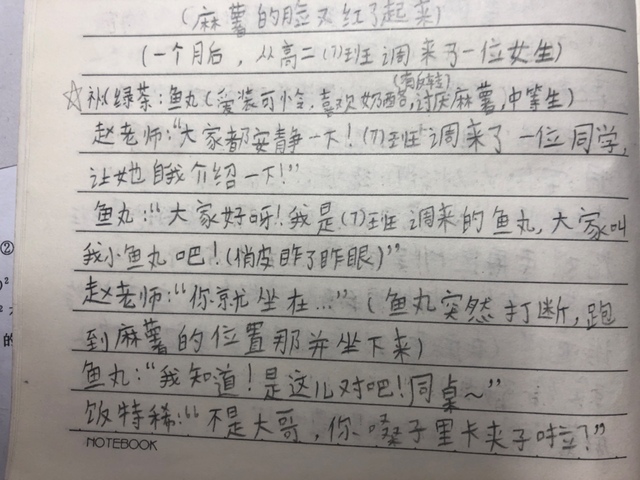 (麻薯的脸又红了起来)
(一个月后，从高二(7)班调来了一位女生)
(有反转)
☆补绿茶：鱼丸(爱装可怜，喜欢奶醋，讨厌麻薯，中等生)
赵老师：“大家都安静一下！(7)班调来了一位同学，
让她自我介绍一下！”
鱼丸：“大家好呀！我是(7)班调来的鱼丸，大家叫
我小鱼丸吧！(俏皮眨了眨眼)”
赵老师：“你就坐在…”(鱼丸突然打断，跑
到麻薯的位置那并坐下来)
鱼丸：“我知道！是这儿对吧！同桌~”
饭特稀：“不是大哥，你嗓子里卡夹子啦？”
NOTEBOOK
②
的